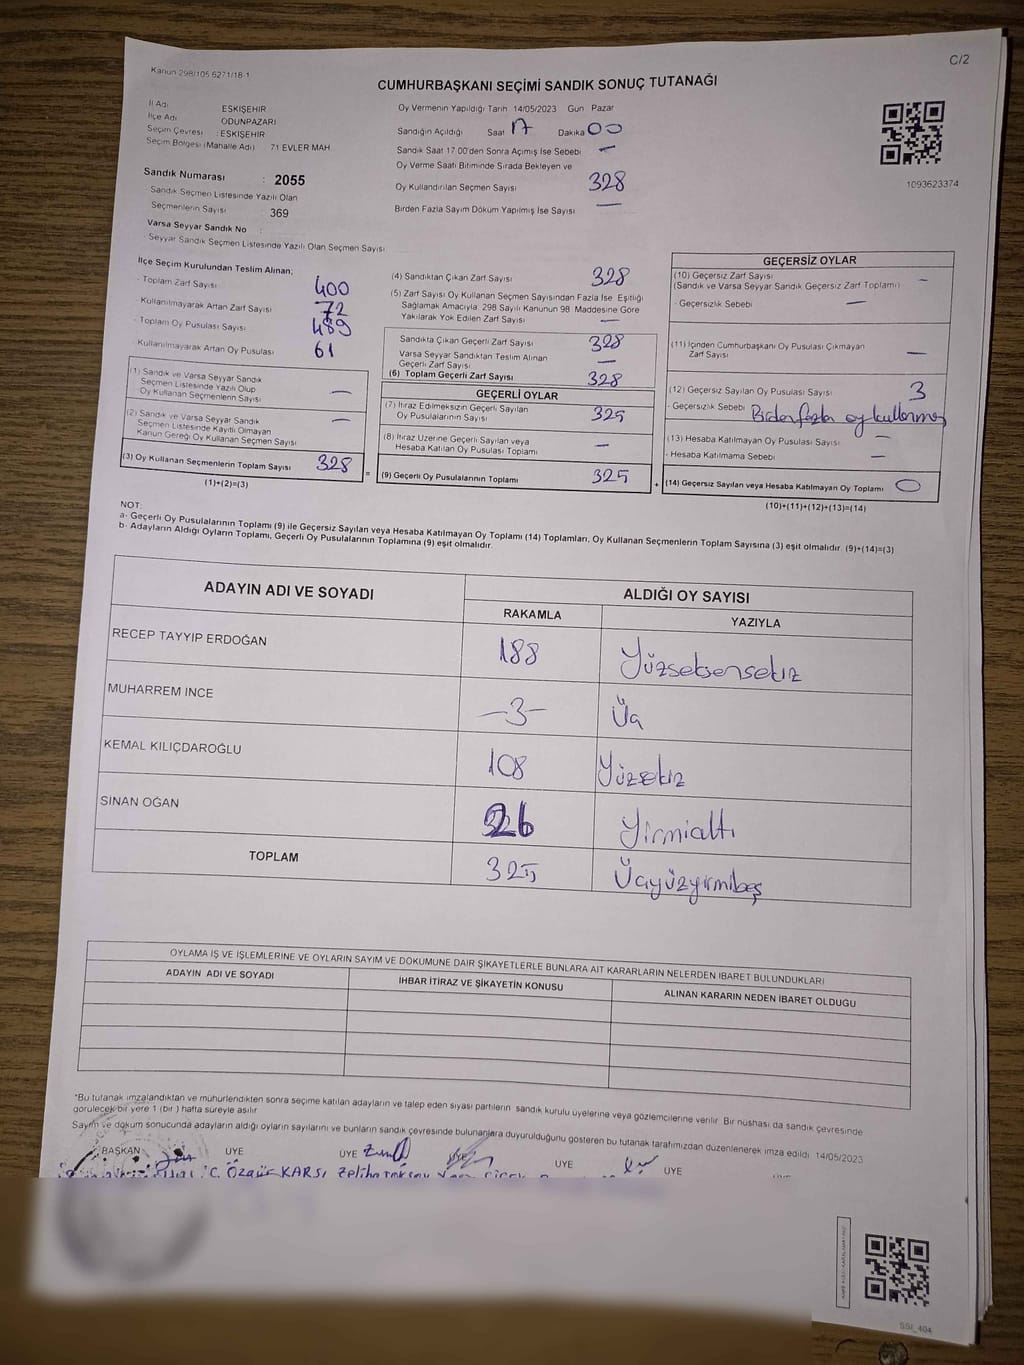 C/2
Kanun 298/105 6271/18-1
CUMHURBAŞKANI SEÇİMİ SANDIK SONUÇ TUTANAĞI
İl Adı ESKİŞEHİR
İlçe Adı ODUNPAZARI
Seçim Çevresi : ESKİŞEHİR
Seçim Bölgesi (Mahalle Adı) 71 EVLER MAH.
Sandık Numarası : 2055
- Sandık Seçmen Listesinde Yazılı Olan
Seçmenlerin Sayısı 369
Varsa Seyyar Sandık No :
- Seyyar Sandık Seçmen Listesinde Yazılı Olan Seçmen Sayısı
Oy Vermenin Yapıldığı Tarih 14/05/2023 Gün Pazar
Sandığın Açıldığı Saat 17 Dakika 00
Sandık Saat 17:00'den Sonra Açımış İse Sebebi –
Oy Verme Saati Bitiminde Sırada Bekleyen ve
Oy Kullandırılan Seçmen Sayısı 328
Birden Fazla Sayım Döküm Yapılmış İse Sayısı —
1093623374
İlçe Seçim Kurulundan Teslim Alınan;
- Toplam Zarf Sayısı 400
- Kullanılmayarak Artan Zarf Sayısı 72
- Toplam Oy Pusulası Sayısı 489
- Kullanılmayarak Artan Oy Pusulası 61
(1) Sandık ve Varsa Seyyar Sandık
Seçmen Listesinde Yazılı Olup
Oy Kullanan Seçmenlerin Sayısı —
(2) Sandık ve Varsa Seyyar Sandık
Seçmen Listesinde Kayıtlı Olmayan
Kanun Gereği Oy Kullanan Seçmen Sayısı —
(3) Oy Kullanan Seçmenlerin Toplam Sayısı 328 =
(1)+(2)=(3)
(4) Sandıktan Çıkan Zarf Sayısı 328
(5) Zarf Sayısı Oy Kullanan Seçmen Sayısından Fazla İse, Eşitliği
Sağlamak Amacıyla, 298 Sayılı Kanunun 98. Maddesine Göre
Yakılarak Yok Edilen Zarf Sayısı —
Sandıkta Çıkan Geçerli Zarf Sayısı 328
Varsa Seyyar Sandıktan Teslim Alınan
Geçerli Zarf Sayısı —
(6) Toplam Geçerli Zarf Sayısı 328
GEÇERLİ OYLAR
(7) İtiraz Edilmeksizin Geçerli Sayılan
Oy Pusulalarının Sayısı 325
(8) İtiraz Üzerine Geçerli Sayılan veya
Hesaba Katılan Oy Pusulası Toplamı —
(9) Geçerli Oy Pusulalarının Toplamı 325 +
GEÇERSİZ OYLAR
(10) Geçersiz Zarf Sayısı
(Sandık ve Varsa Seyyar Sandık Geçersiz Zarf Toplamı) —
- Geçersizlik Sebebi —
(11) İçinden Cumhurbaşkanı Oy Pusulası Çıkmayan
Zarf Sayısı —
(12) Geçersiz Sayılan Oy Pusulası Sayısı 3
- Geçersizlik Sebebi Birden fazla oy kullanma
(13) Hesaba Katılmayan Oy Pusulası Sayısı —
- Hesaba Katılmama Sebebi —
(14) Geçersiz Sayılan veya Hesaba Katılmayan Oy Toplamı 0
(10)+(11)+(12)+(13)=(14)
NOT:
a- Geçerli Oy Pusulalarının Toplamı (9) ile Geçersiz Sayılan veya Hesaba Katılmayan Oy Toplamı (14) Toplamları, Oy Kullanan Seçmenlerin Toplam Sayısına (3) eşit olmalıdır. (9)+(14)=(3)
b- Adayların Aldığı Oyların Toplamı, Geçerli Oy Pusulalarının Toplamına (9) eşit olmalıdır.
ADAYIN ADI VE SOYADI ALDIĞI OY SAYISI
RAKAMLA YAZIYLA
RECEP TAYYİP ERDOĞAN 188 Yüzseksensekiz
MUHARREM İNCE -3- Üç
KEMAL KILIÇDAROĞLU 108 Yüzsekiz
SİNAN OĞAN 26 Yirmialtı
TOPLAM 325 Üçyüzyirmibeş
OYLAMA İŞ VE İŞLEMLERİNE VE OYLARIN SAYIM VE DÖKÜMÜNE DAİR ŞİKAYETLERLE BUNLARA AİT KARARLARIN NELERDEN İBARET BULUNDUKLARI
ADAYIN ADI VE SOYADI İHBAR İTİRAZ VE ŞİKAYETİN KONUSU ALINAN KARARIN NEDEN İBARET OLDUĞU
*Bu tutanak imzalandıktan ve mühürlendikten sonra seçime katılan adayların ve talep eden siyasi partilerin sandık kurulu üyelerine veya gözlemcilerine verilir. Bir nüshası da sandık çevresinde
görülecek bir yere 1 (bir) hafta süreyle asılır
Sayım ve döküm sonucunda adayların aldığı oyların sayılarını ve bunların sandık çevresinde bulunanlara duyurulduğunu gösteren bu tutanak tarafımızdan düzenlenerek imza edildi. 14/05/2023
BAŞKAN ÜYE ÜYE ÜYE ÜYE ÜYE
Özgür KARSI Zeliha
SSİ_404